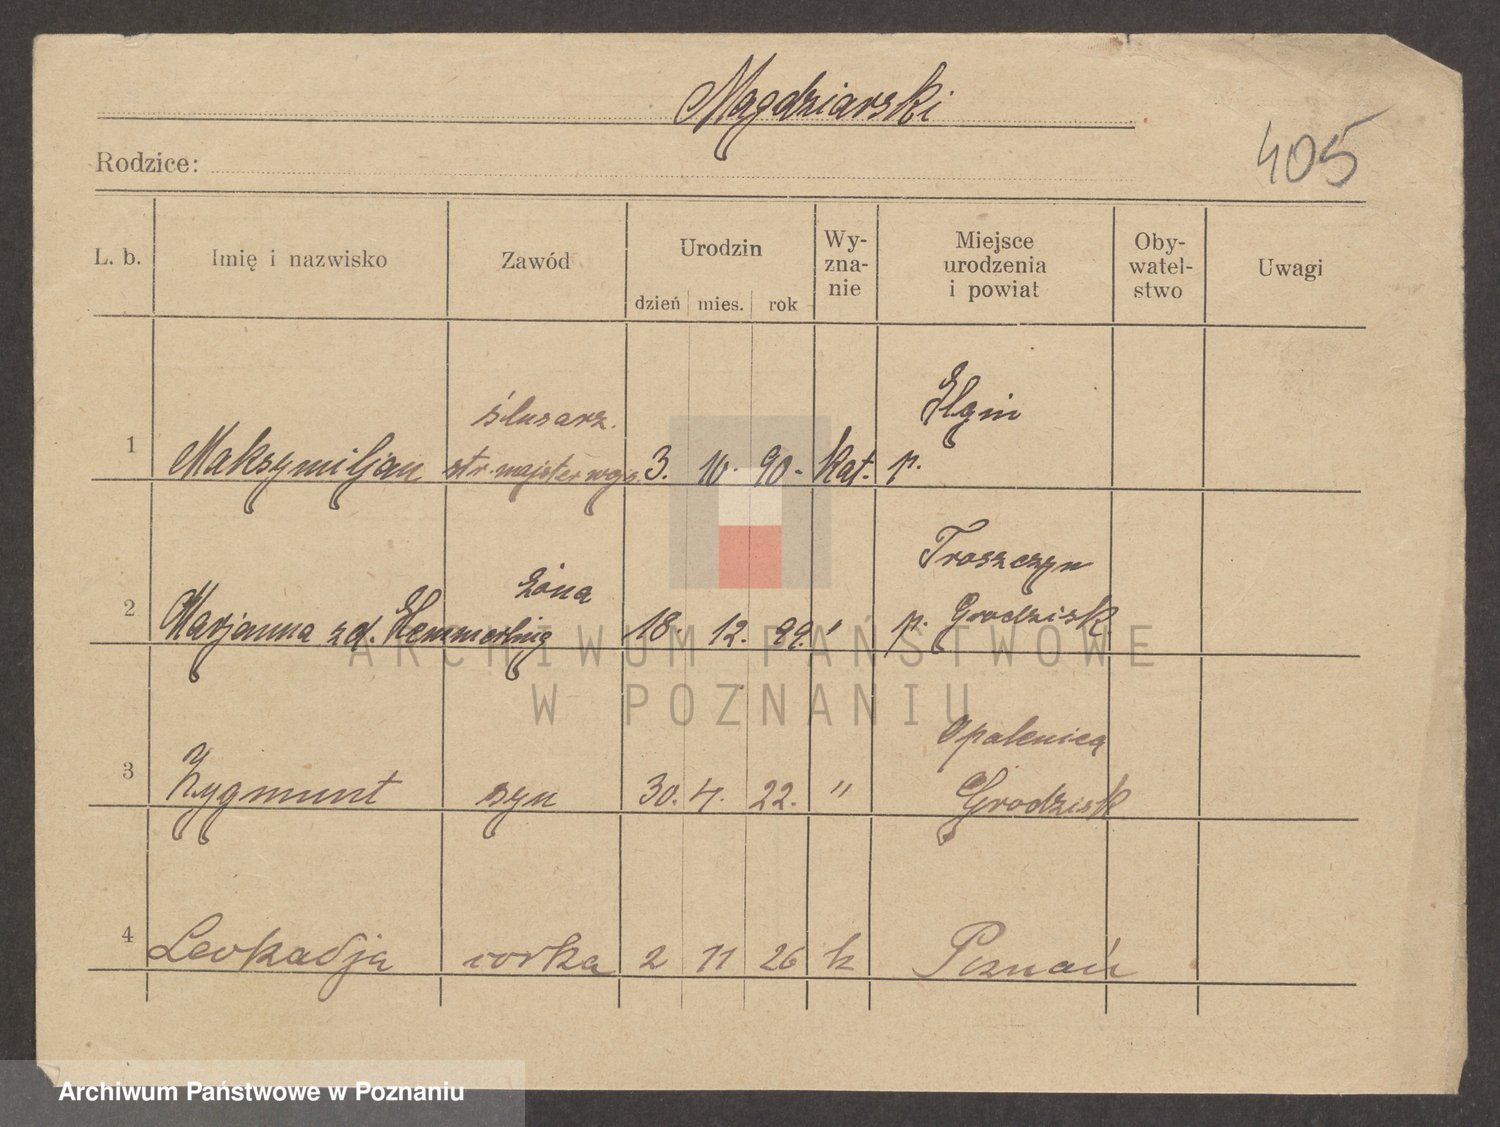 Magdziarski
405
Rodzice:
L. b. Imię i nazwisko Zawód Urodzin Wy-zna-nie Miejsce urodzenia i powiat Oby-watel-stwo Uwagi
dzień mies. rok
ślusarz.
Elgin
1 Maksymiljan str. majster wojs. 3. 10. 90. kat. p.
żona
Troszczyn
2 Marjanna z d. Hemmerling 18. 12. 99. " p. Grodzisk
Opalenica
3 Zygmunt syn 30. 4. 22. " Grodzisk
4 Leokadja corka 2 11 26 k Poznań
ARCHIWUM PAŃSTWOWE
W POZNANIU
Archiwum Państwowe w Poznaniu